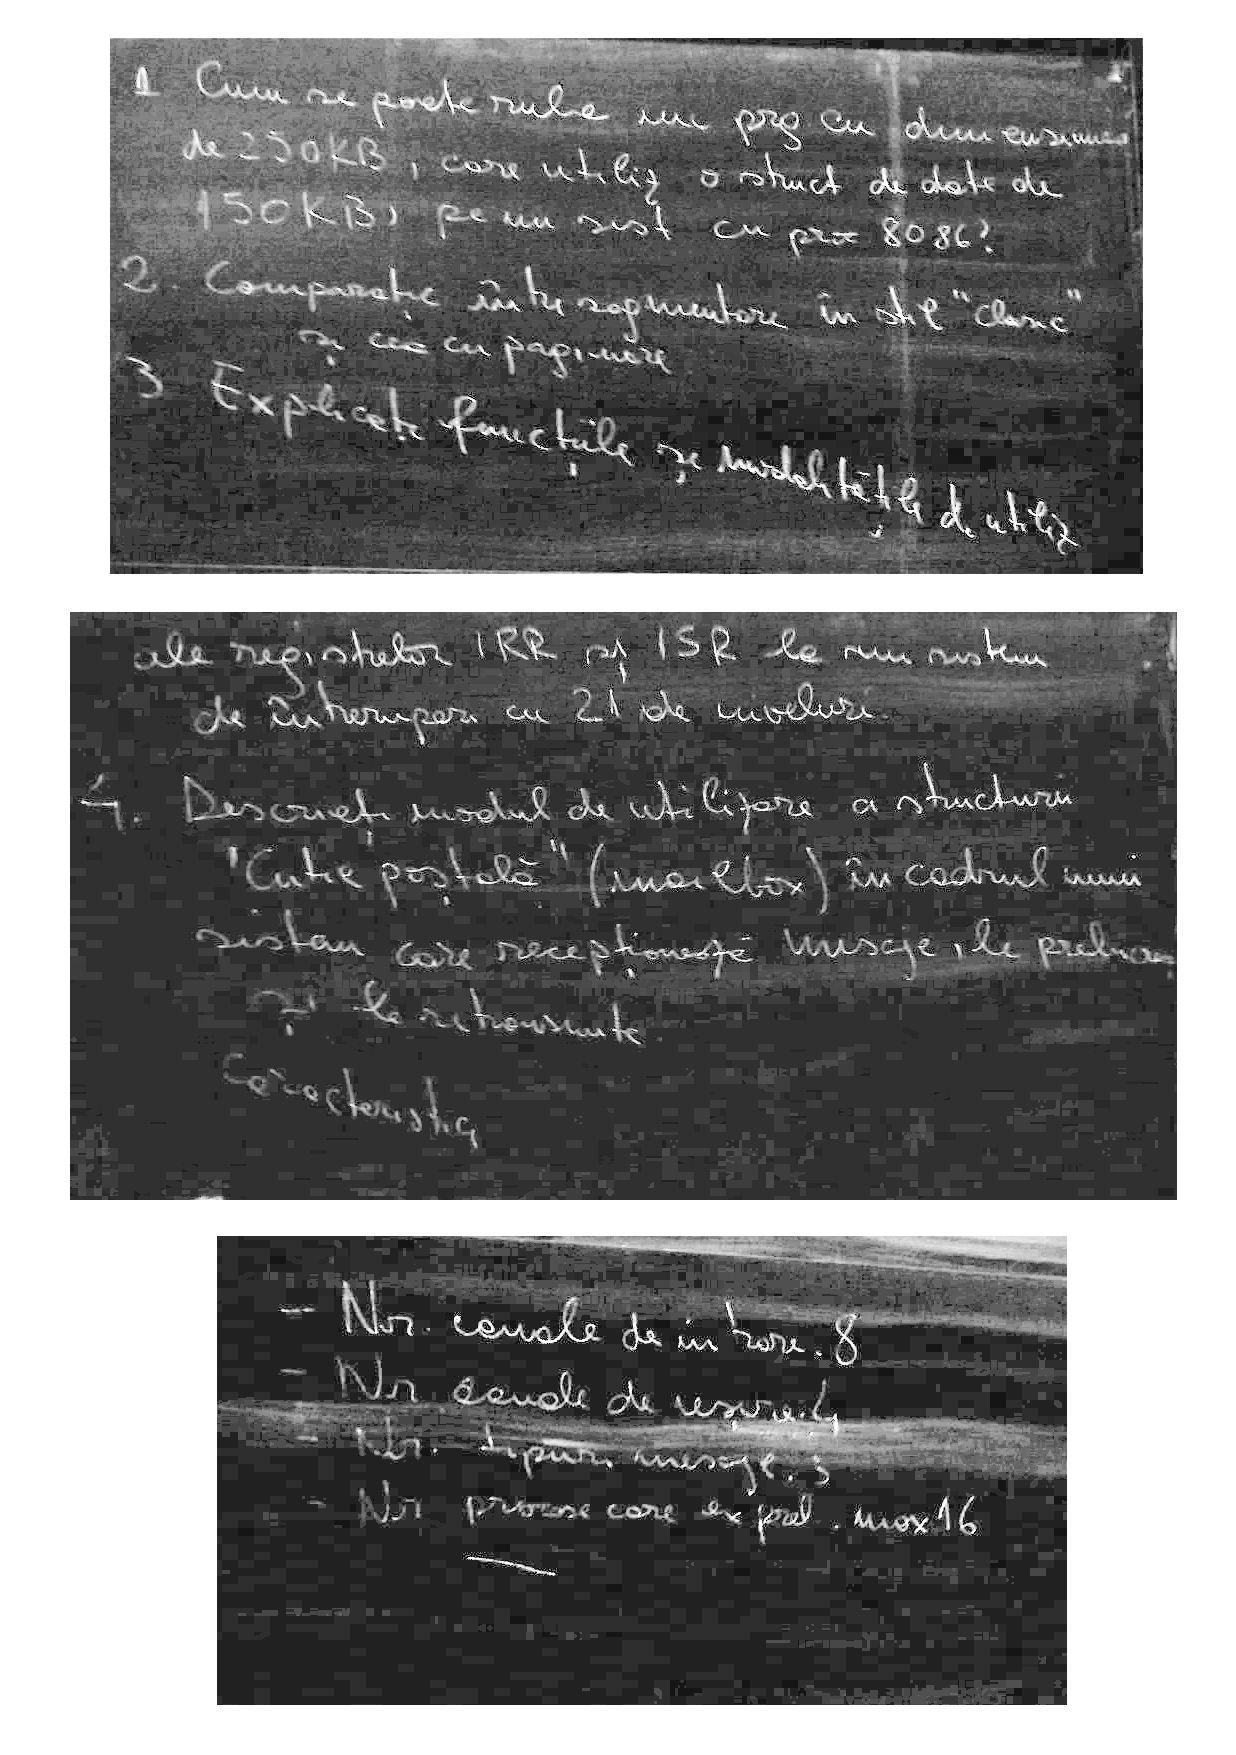 1 Cum se poate rula un prg cu dimensiunea
de 250KB, care utiliz o struct de date de
150KB, pe un sist cu proc 8086?
2. Comparație între segmentare în stil "clasic"
și cea cu paginare
3 Explicați funcțiile și modalitățile de utiliz
ale registrelor IRR și ISR la un sistem
de întreruperi cu 21 de niveluri.
4. Descrieți modul de utilizare a structurii
"Cutie poștală" (mailbox) în cadrul unui
sistem care recepționează mesaje, le prelucr
și le retransmite.
Caracteristici
- Nr. canale de intrare. 8
- Nr. canale de ieșire. 4
- Nr. tipuri mesaje. 3
- Nr procese care ex prel. max 16